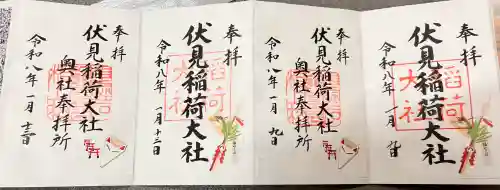 奉拝
伏見稲荷大社
令和八年 一月
奉拝
伏見稲荷大社
奥社奉拝所
令和八年 一月 九日
奉拝
伏見稲荷大社
令和八年 一月 十二日
奉拝
伏見稲荷大社
奥社奉拝所
令和八年 一月